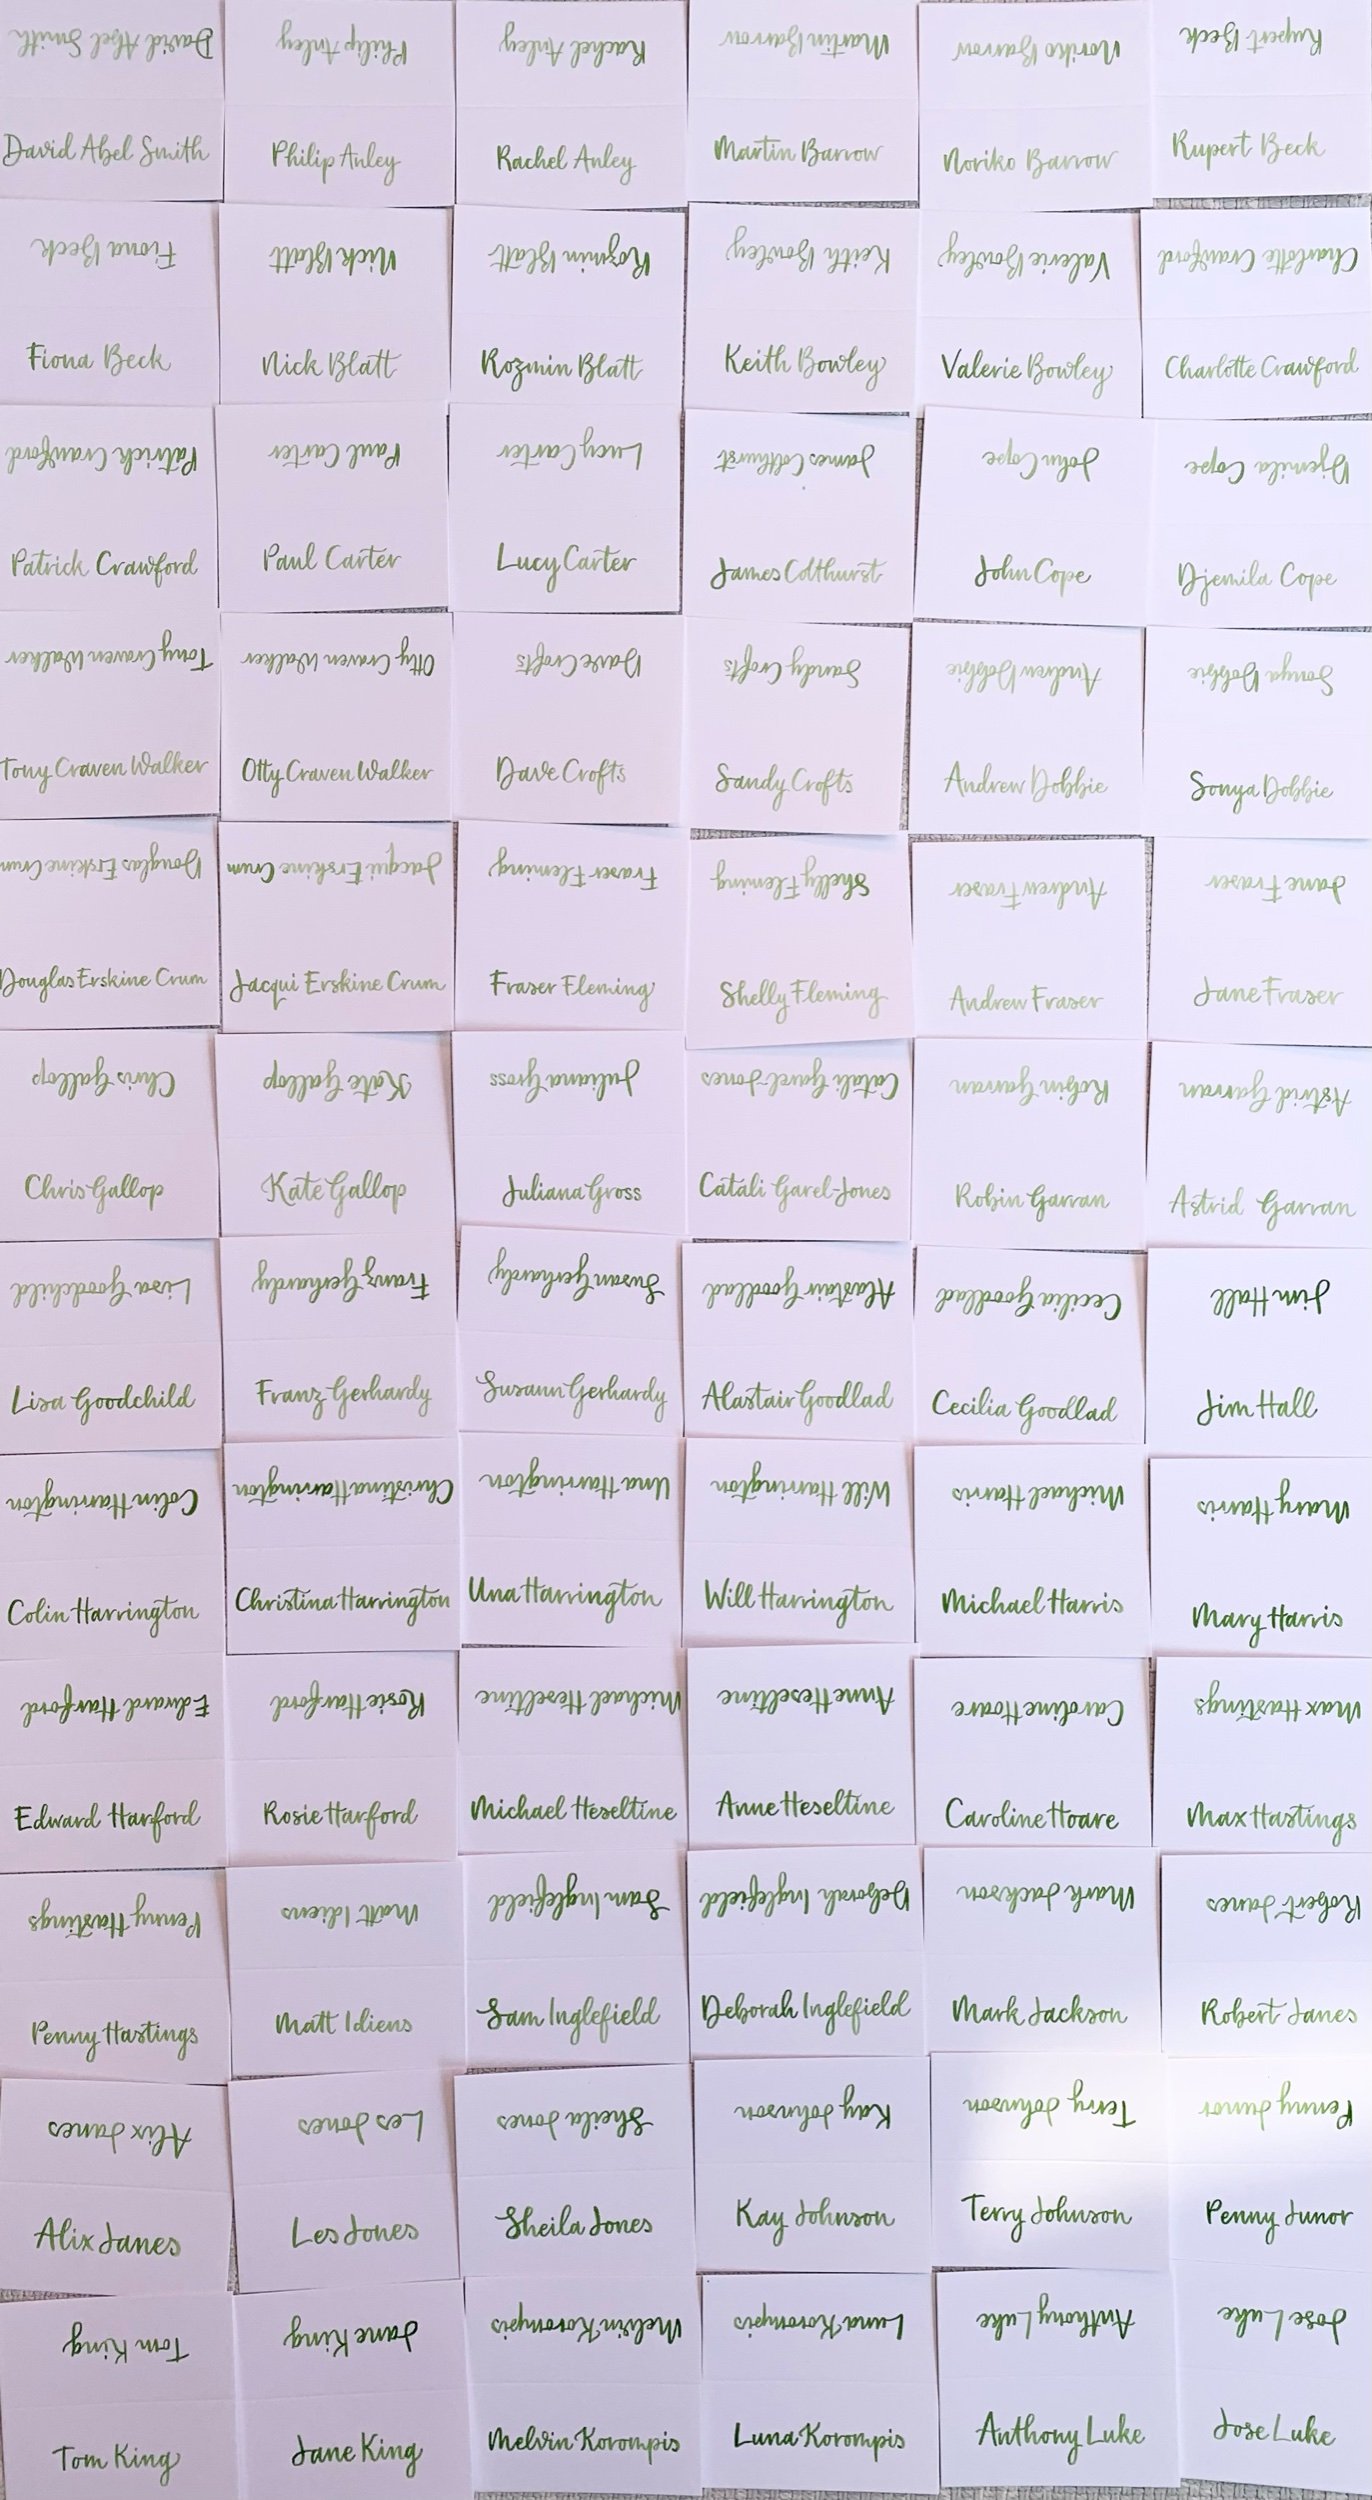 David Abel Smith
David Abel Smith
Philip Anley
Philip Anley
Rachel Anley
Rachel Anley
Martin Barrow
Martin Barrow
Noriko Barrow
Noriko Barrow
Rupert Beck
Rupert Beck
Fiona Beck
Fiona Beck
Nick Blatt
Nick Blatt
Rozmin Blatt
Rozmin Blatt
Keith Bowley
Keith Bowley
Valerie Bowley
Valerie Bowley
Charlotte Crawford
Charlotte Crawford
Patrick Crawford
Patrick Crawford
Paul Carter
Paul Carter
Lucy Carter
Lucy Carter
James Colthurst
James Colthurst
John Cope
John Cope
Djemila Cope
Djemila Cope
Tony Craven Walker
Tony Craven Walker
Otty Craven Walker
Otty Craven Walker
Dave Crofts
Dave Crofts
Sandy Crofts
Sandy Crofts
Andrew Dobbie
Andrew Dobbie
Sonya Dobbie
Sonya Dobbie
Douglas Erskine Crum
Douglas Erskine Crum
Jacqui Erskine Crum
Jacqui Erskine Crum
Fraser Fleming
Fraser Fleming
Shelly Fleming
Shelly Fleming
Andrew Fraser
Andrew Fraser
Jane Fraser
Jane Fraser
Chris Gallop
Chris Gallop
Kate Gallop
Kate Gallop
Juliana Gross
Juliana Gross
Catali Garel-Jones
Catali Garel-Jones
Robin Garran
Robin Garran
Astrid Garran
Astrid Garran
Lisa Goodchild
Lisa Goodchild
Franz Gerhardy
Franz Gerhardy
Susann Gerhardy
Susann Gerhardy
Alastair Goodlad
Alastair Goodlad
Cecilia Goodlad
Cecilia Goodlad
Jim Hall
Jim Hall
Colin Harrington
Colin Harrington
Christina Harrington
Christina Harrington
Una Harrington
Una Harrington
Will Harrington
Will Harrington
Michael Harris
Michael Harris
Mary Harris
Mary Harris
Edward Harford
Edward Harford
Rosie Harford
Rosie Harford
Michael Heseltine
Michael Heseltine
Anne Heseltine
Anne Heseltine
Caroline Hoare
Caroline Hoare
Max Hastings
Max Hastings
Penny Hastings
Penny Hastings
Matt Idiens
Matt Idiens
Sam Inglefield
Sam Inglefield
Deborah Inglefield
Deborah Inglefield
Mark Jackson
Mark Jackson
Robert Janes
Robert Janes
Alix Janes
Alix Janes
Les Jones
Les Jones
Sheila Jones
Sheila Jones
Kay Johnson
Kay Johnson
Terry Johnson
Terry Johnson
Penny Junor
Penny Junor
Tom King
Tom King
Jane King
Jane King
Melvin Korompis
Melvin Korompis
Luna Korompis
Luna Korompis
Anthony Luke
Anthony Luke
Jose Luke
Jose Luke